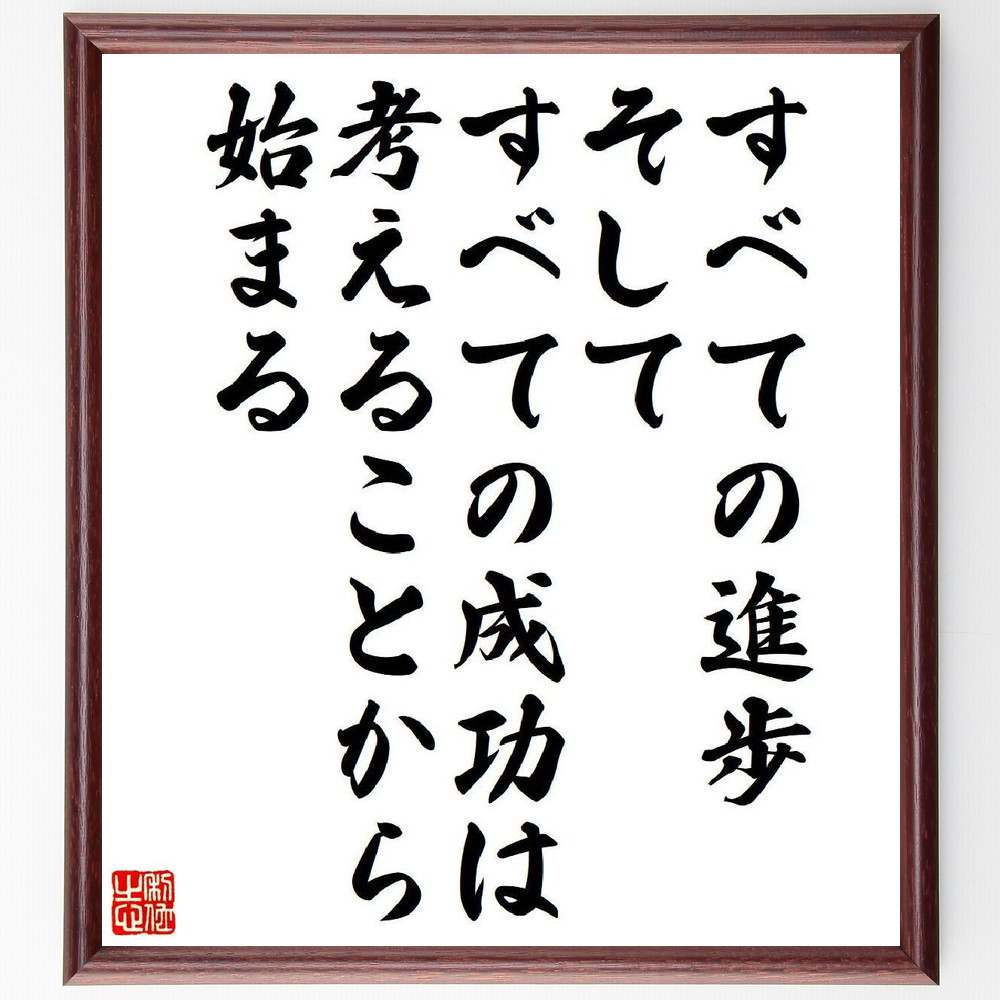 すべての進歩
そして
すべての成功は
考えることから
始まる